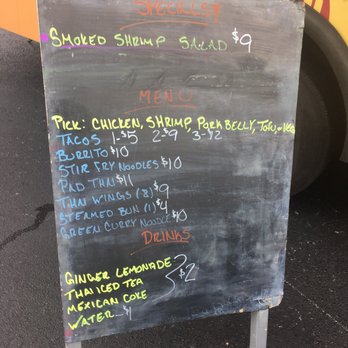 SPECIALS
SMOKED SHRIMP SALAD $9
MENU
PICK: CHICKEN, SHRIMP, PORK BELLY, TOFU,
TACOS 1-$5 2-$9 3-12
BURRITO $10
STIR FRY NOODLES $10
PAD THAI $11
THAI WINGS (8) $9
STEAMED BUN (1) $4
GREEN CURRY NOODLE $10
DRINKS
GINGER LEMONADE
THAI ICED TEA $2
MEXICAN COKE
WATER